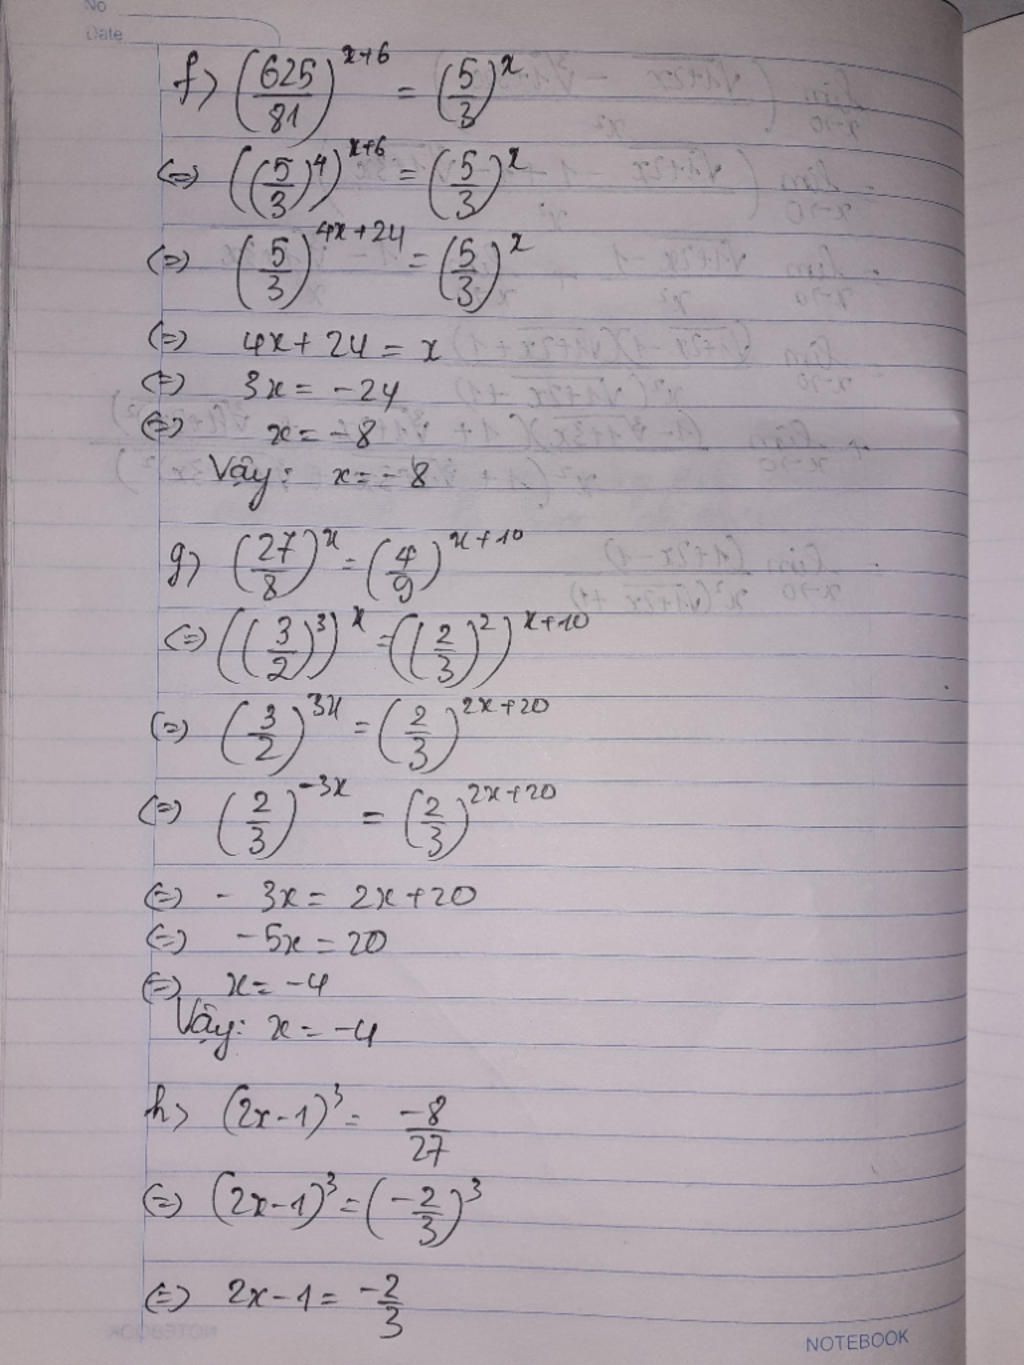 No
Date
f) (625/81)^(x+6) = (5/3)^x
(=) ((5/3)^4)^(x+6) = (5/3)^x
(=) (5/3)^(4x+24) = (5/3)^x
(=) 4x+24 = x
(=) 3x = -24
(=) x = -8
Vậy: x = -8
g) (27/8)^x = (4/9)^(x+10)
(=) ((3/2)^3)^x = ((2/3)^2)^(x+10)
(=) (3/2)^(3x) = (2/3)^(2x+20)
(=) (2/3)^(-3x) = (2/3)^(2x+20)
(=) -3x = 2x+20
(=) -5x = 20
(=) x = -4
Vậy: x = -4
h) (2x-1)^3 = -8/27
(=) (2x-1)^3 = (-2/3)^3
(=) 2x-1 = -2/3
NOTEBOOK